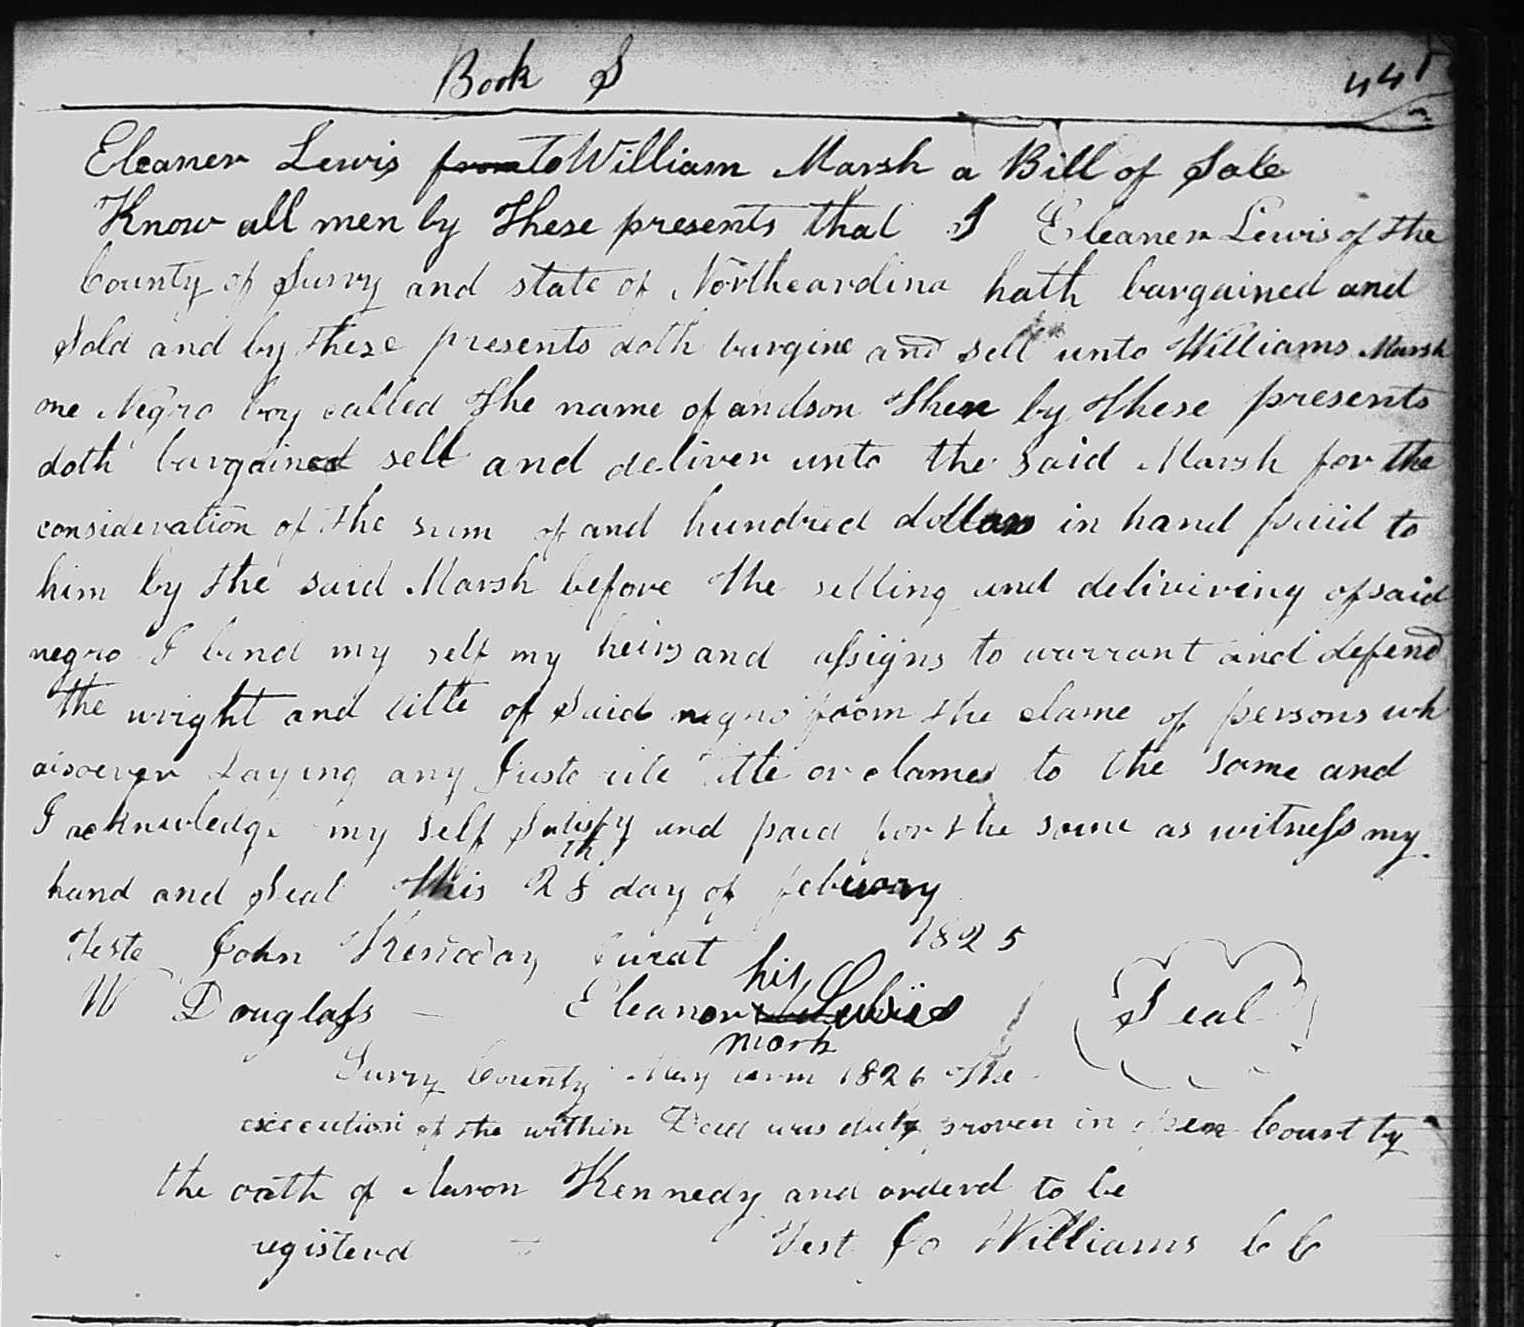 Book S 44
Eleaner Lewis from to William Marsh a Bill of Sale
Know all men by these presents that I Eleaner Lewis of the
County of Surry and state of Northcarolina hath bargained and
Sold and by these presents doth bargine and sell unto Williams Marsh
one Negro boy called the name of andson then by these presents
doth bargained sell and deliver unto the said Marsh for the
consideration of the sum of and hundred dollars in hand paid to
him by the said Marsh before the selling and deliviring of said
negro I bind my self my heirs and assigns to warrant and defend
the wright and title of said negro from the clame of persons wh
oisoever Laying any Juste rite title or clames to the same and
I acknowledge my self Satisfy and paid for the same as witness my
hand and Seal this 28th day of february
1825
Teste John Jurat
W Douglass Eleanor his Lewis Seal
mark
Surry County May term 1826 The
execution of the within Deed was duly proven in open Court by
the oath of Aaron Kennedy and orderd to be
registerd Test Jo Williams CC